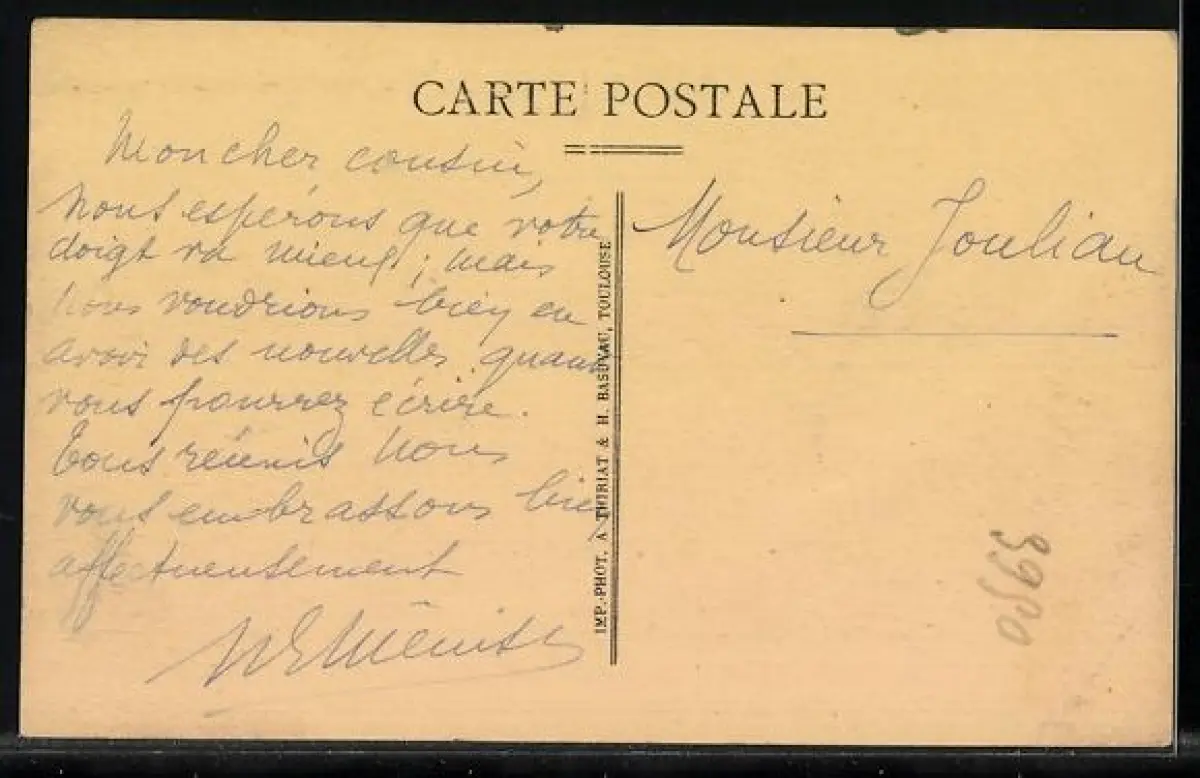 CARTE POSTALE
Mon cher cousin,
Nous espérons que votre
doigt va mieux; mais
nous voudrions bien en
avoir des nouvelles quand
vous pourrez écrire.
Tous réunis nous
vous embrassons bien
affectueusement
Monsieur Joulian
IMP.-PHOT. A. THIRIAT & H. BASUYAU, TOULOUSE